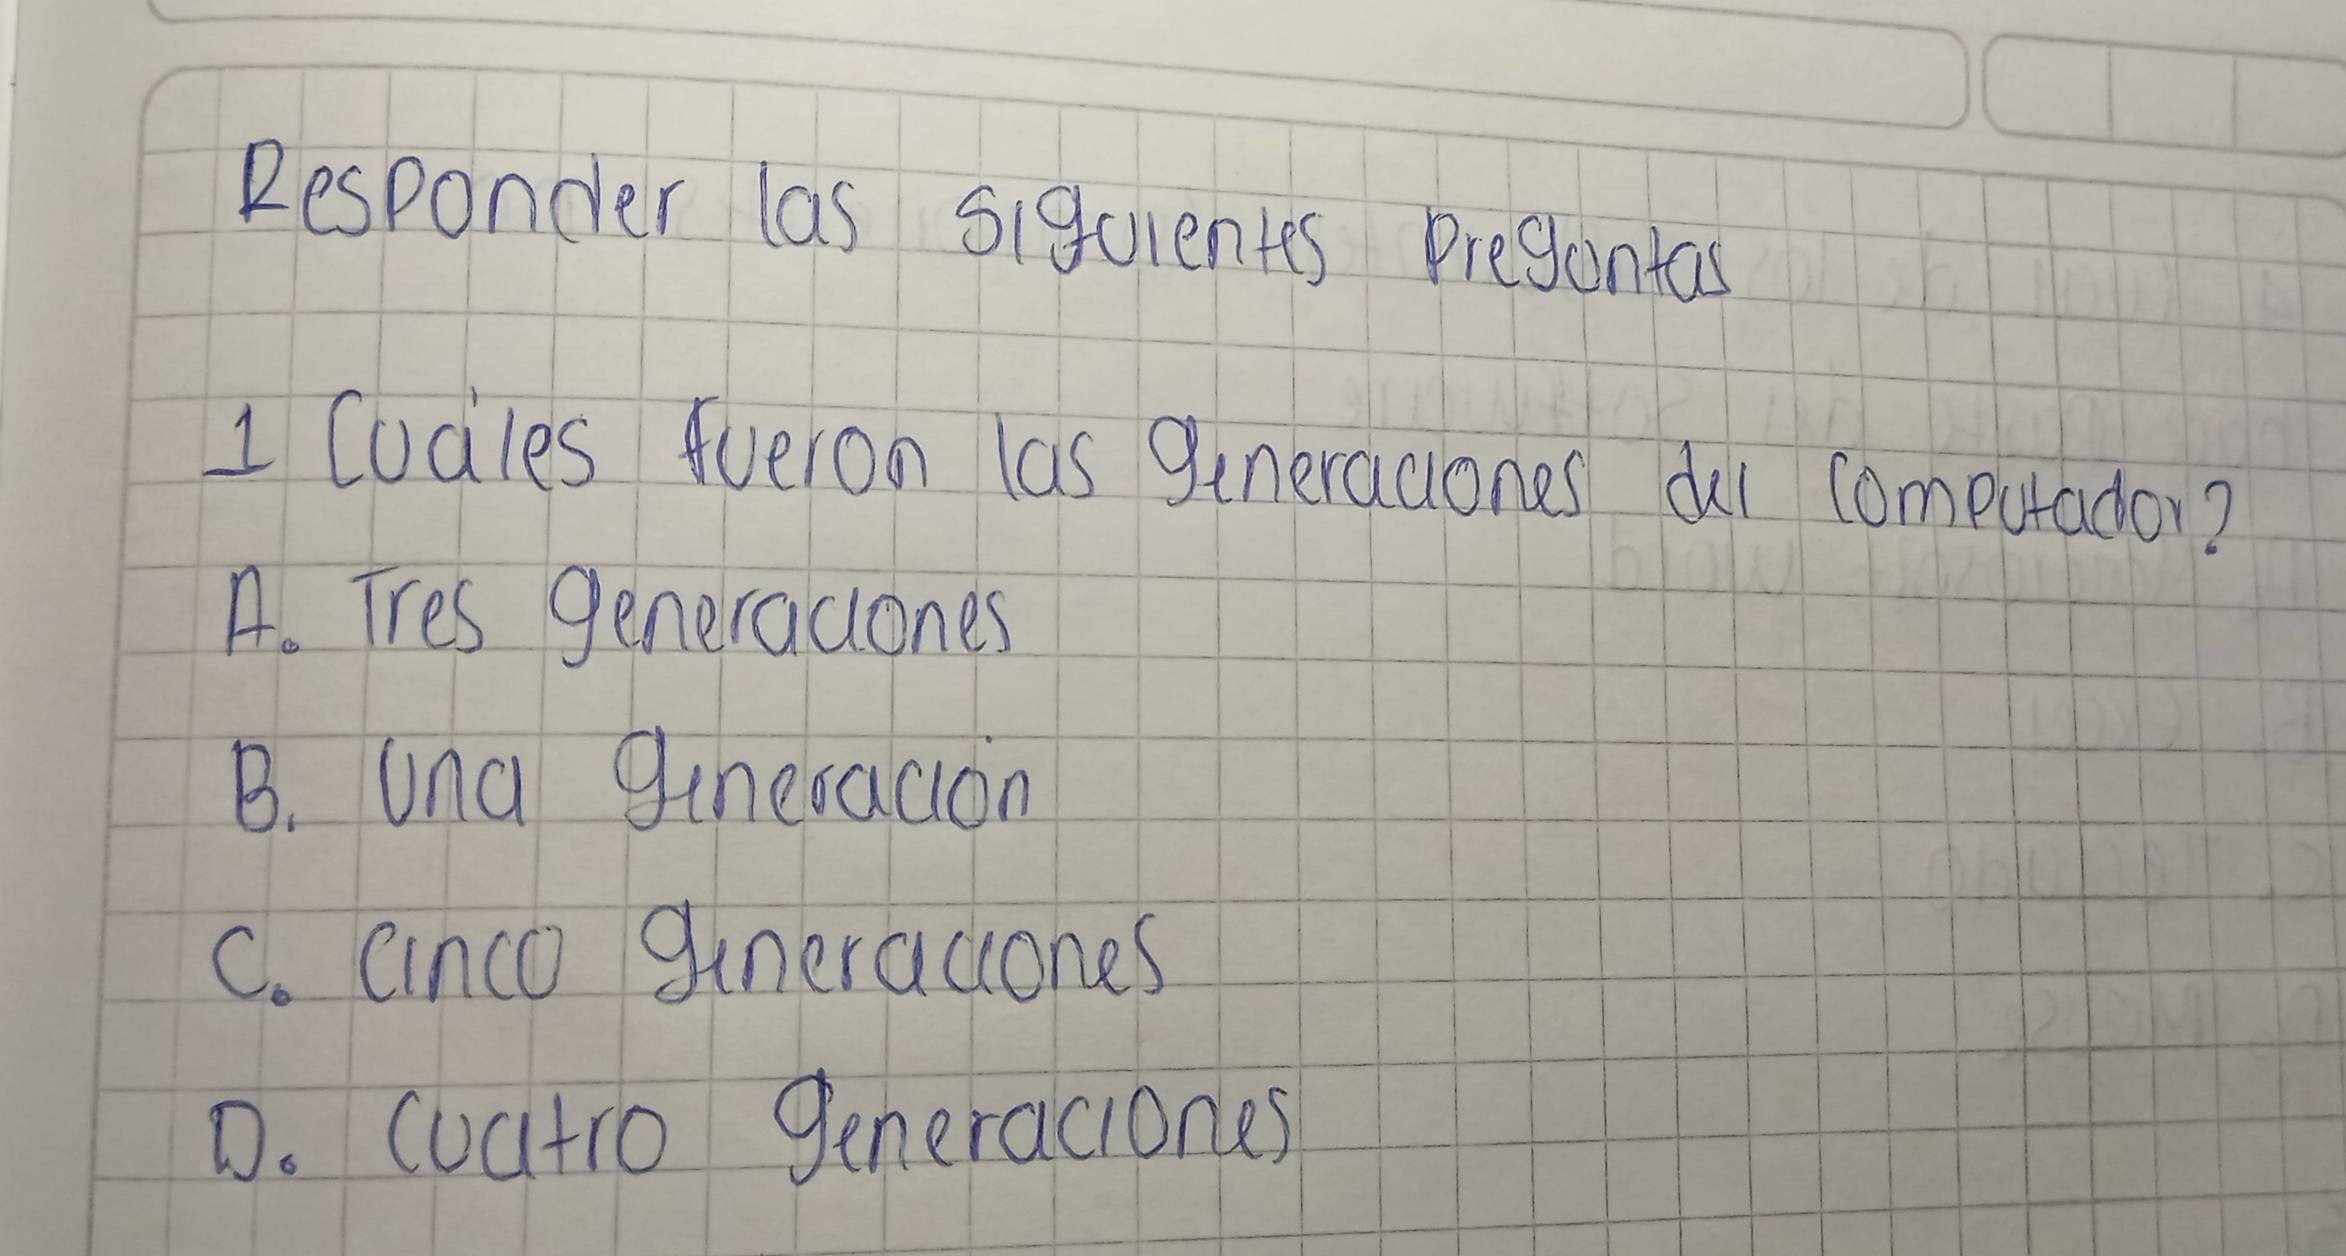 Responder las siguientes preguntas
1 Cuáles fueron las generaciones del computador?
A. Tres generaciones
B. una generación
C. cinco generaciones
D. cuatro generaciones